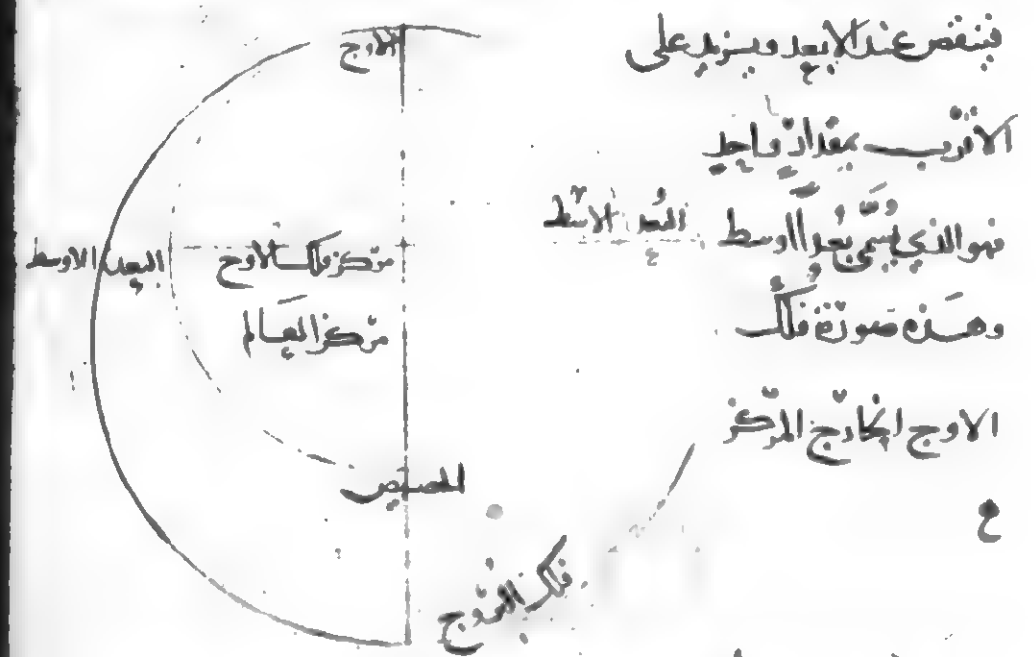 فينقص عند الابعد ويزيد على
الاقرب بمقدار واحد
فهو الذي يسمى بُعداً اوسط
وهذه صورة فلك
الاوج الخارج المركز
الاوج
البعد الاوسط
مركز فلك الاوج
البعد الاوسط
مركز العالم
الحضيض
فلك البروج